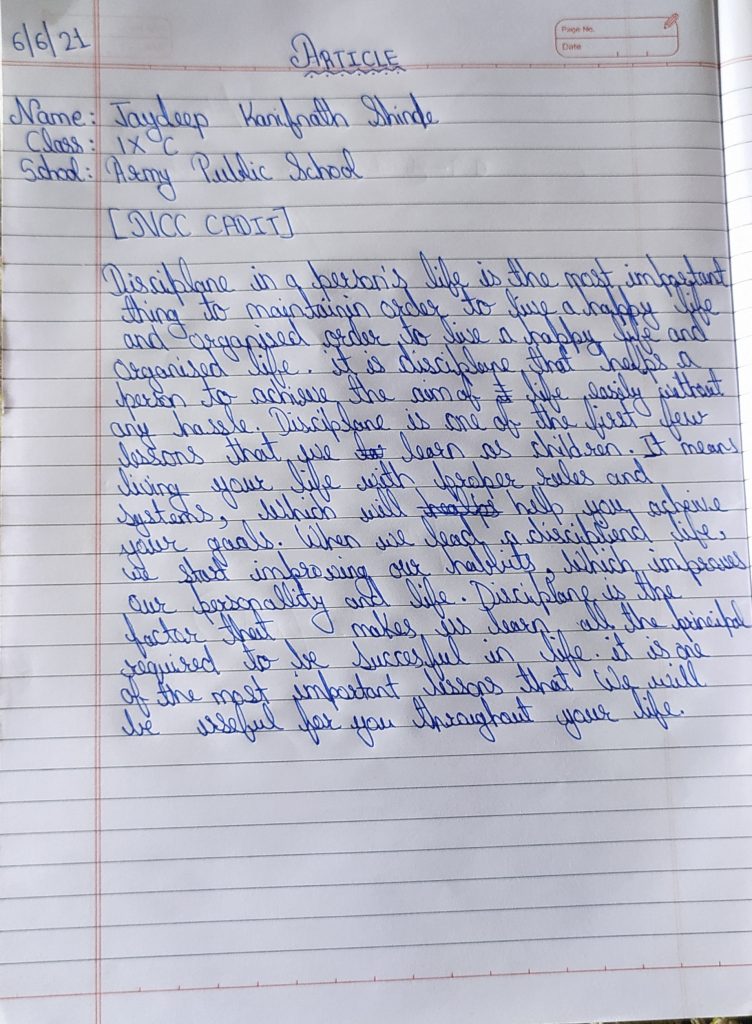 6/6/21
Page No.
Date
ARTICLE
Name: Jaydeep Kanifnath Shinde
Class: IX C
School: Army Public School
[JNCC CADIT]
Disciplane in a person's life is the most important
thing to maintainin order to live a happy life
and organised order to live a happy life and
organised life. it is disciplane that helps a
person to achieve the aim of life easily without
any hassle. Disciplane is one of the first few
lessons that we learn as children. It means
living your life with proper rules and
systems, which will help you acheive
your goals. When we lead a disciplend life,
we start improving our habbits, which improves
our personallity and life. Disciplane is the
factor that makes us learn all the principal
required to be succesful in life. it is one
of the most important lessons that We will
be useful for you throughout your life.